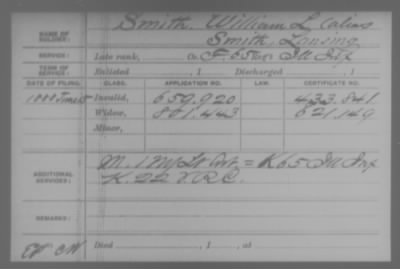 NAME OF SOLDIER: Smith, William L alias
Smith, Lansing
SERVICE: Late rank, Co. F 65 Reg't Ill Inf
TERM OF SERVICE: Enlisted , 1 Discharged , 1
DATE OF FILING. CLASS. APPLICATION NO. LAW. CERTIFICATE NO.
1888 June Invalid, 659.920 433.841
Widow, 881.443 621.149
Minor,
ADDITIONAL SERVICES: = K 65 Ill Inf
K. 22 V.R.C.
REMARKS:
Died , 1 , at